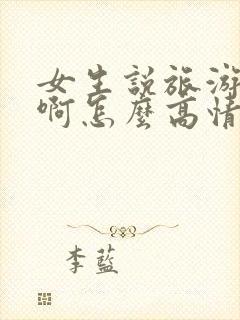 女生說旅游
啊怎麼高情
李藍